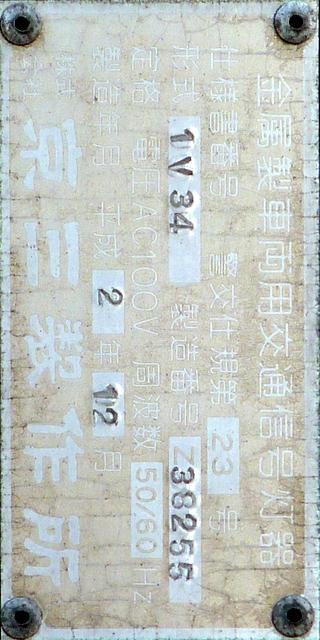 金属製車両用交通信号灯器
仕様書番号 警交仕規第 23 号
形式 1V34 製造番号 Z38255
定格 電圧AC100V 周波数 50/60 Hz
製造年月 平成 2 年 12 月
株式会社 京三製作所